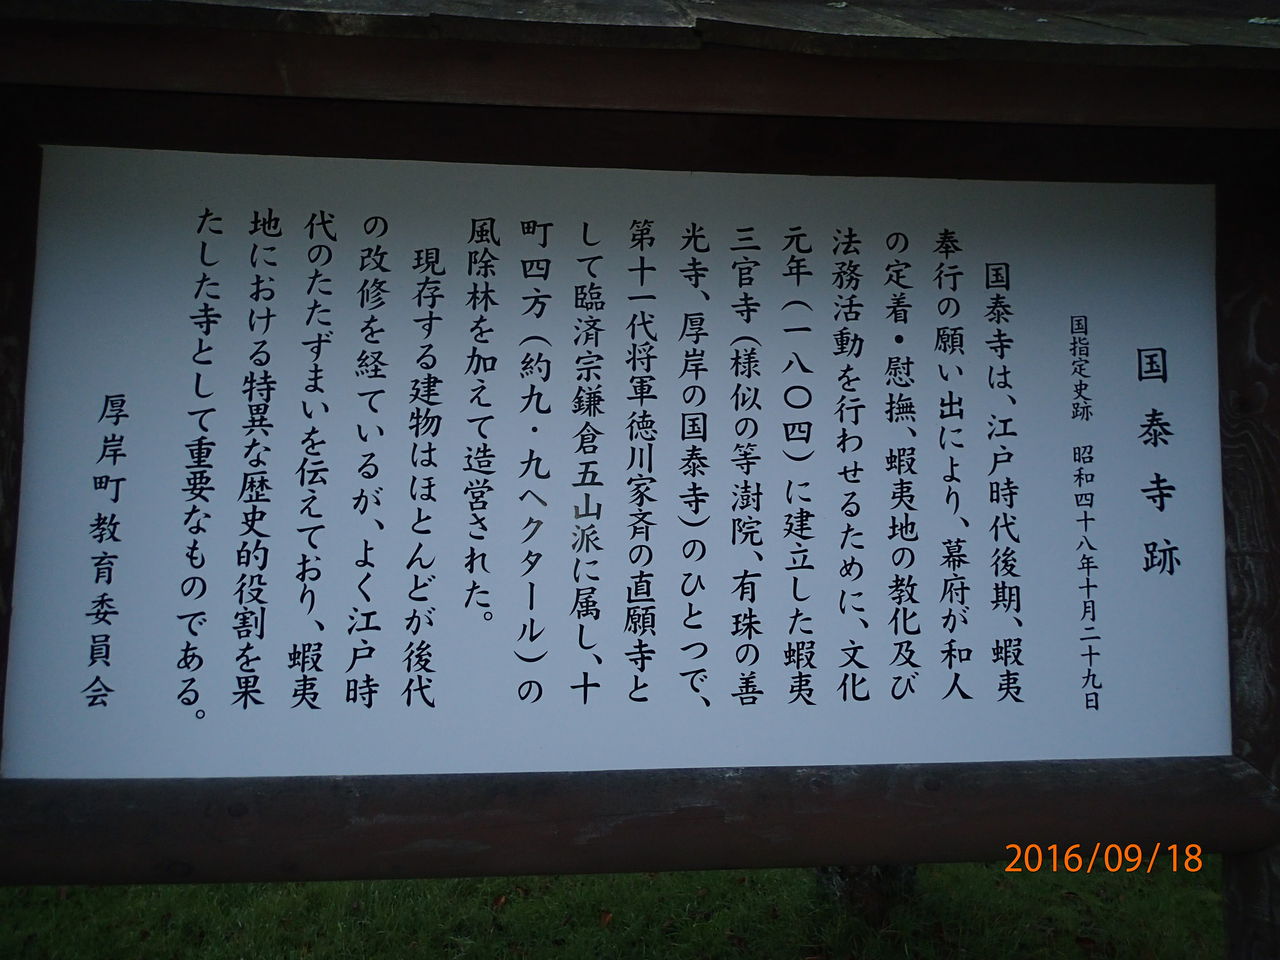 国泰寺跡
国指定史跡　昭和四十八年十月二十九日
国泰寺は、江戸時代後期、蝦夷
奉行の願い出により、幕府が和人
の定着・慰撫、蝦夷地の教化及び
法務活動を行わせるために、文化
元年（一八〇四）に建立した蝦夷
三官寺（様似の等澍院、有珠の善
光寺、厚岸の国泰寺）のひとつで、
第十一代将軍徳川家斉の直願寺と
して臨済宗鎌倉五山派に属し、十
町四方（約九・九ヘクタール）の
風除林を加えて造営された。
現存する建物はほとんどが後代
の改修を経ているが、よく江戸時
代のたたずまいを伝えており、蝦夷
地における特異な歴史的役割を果
たした寺として重要なものである。
厚岸町教育委員会
2016/09/18